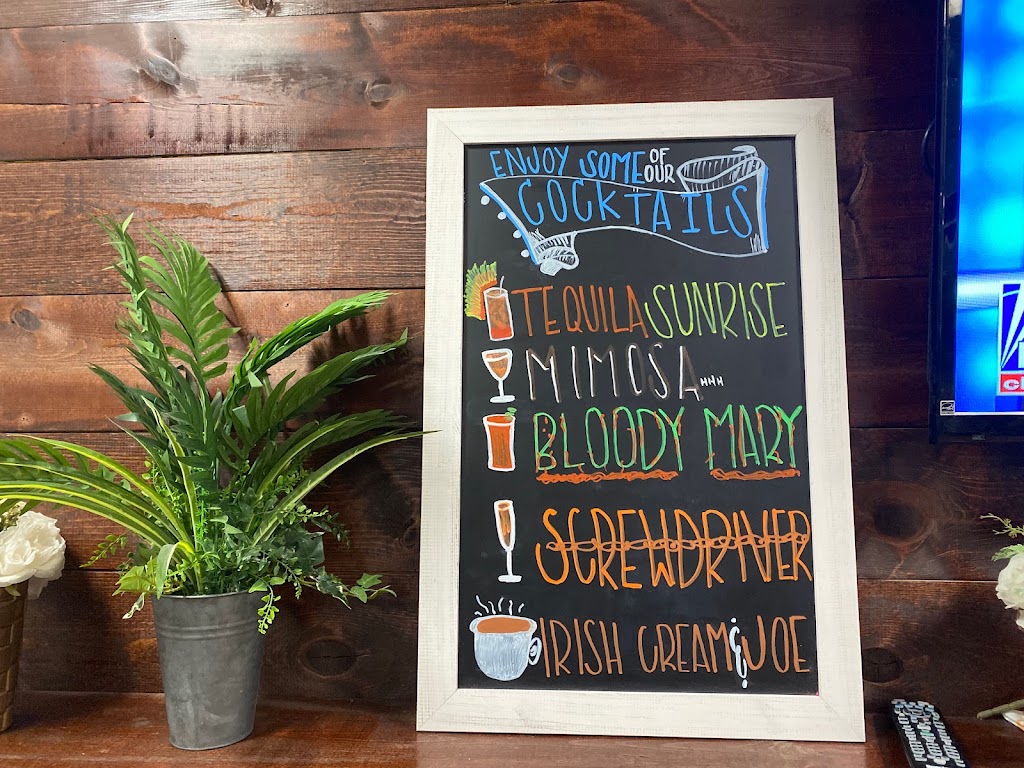 ENJOY SOME OF OUR
COCKTAILS
TEQUILA SUNRISE
MIMOSA
BLOODY MARY
SCREWDRIVER
IRISH CREAM & JOE